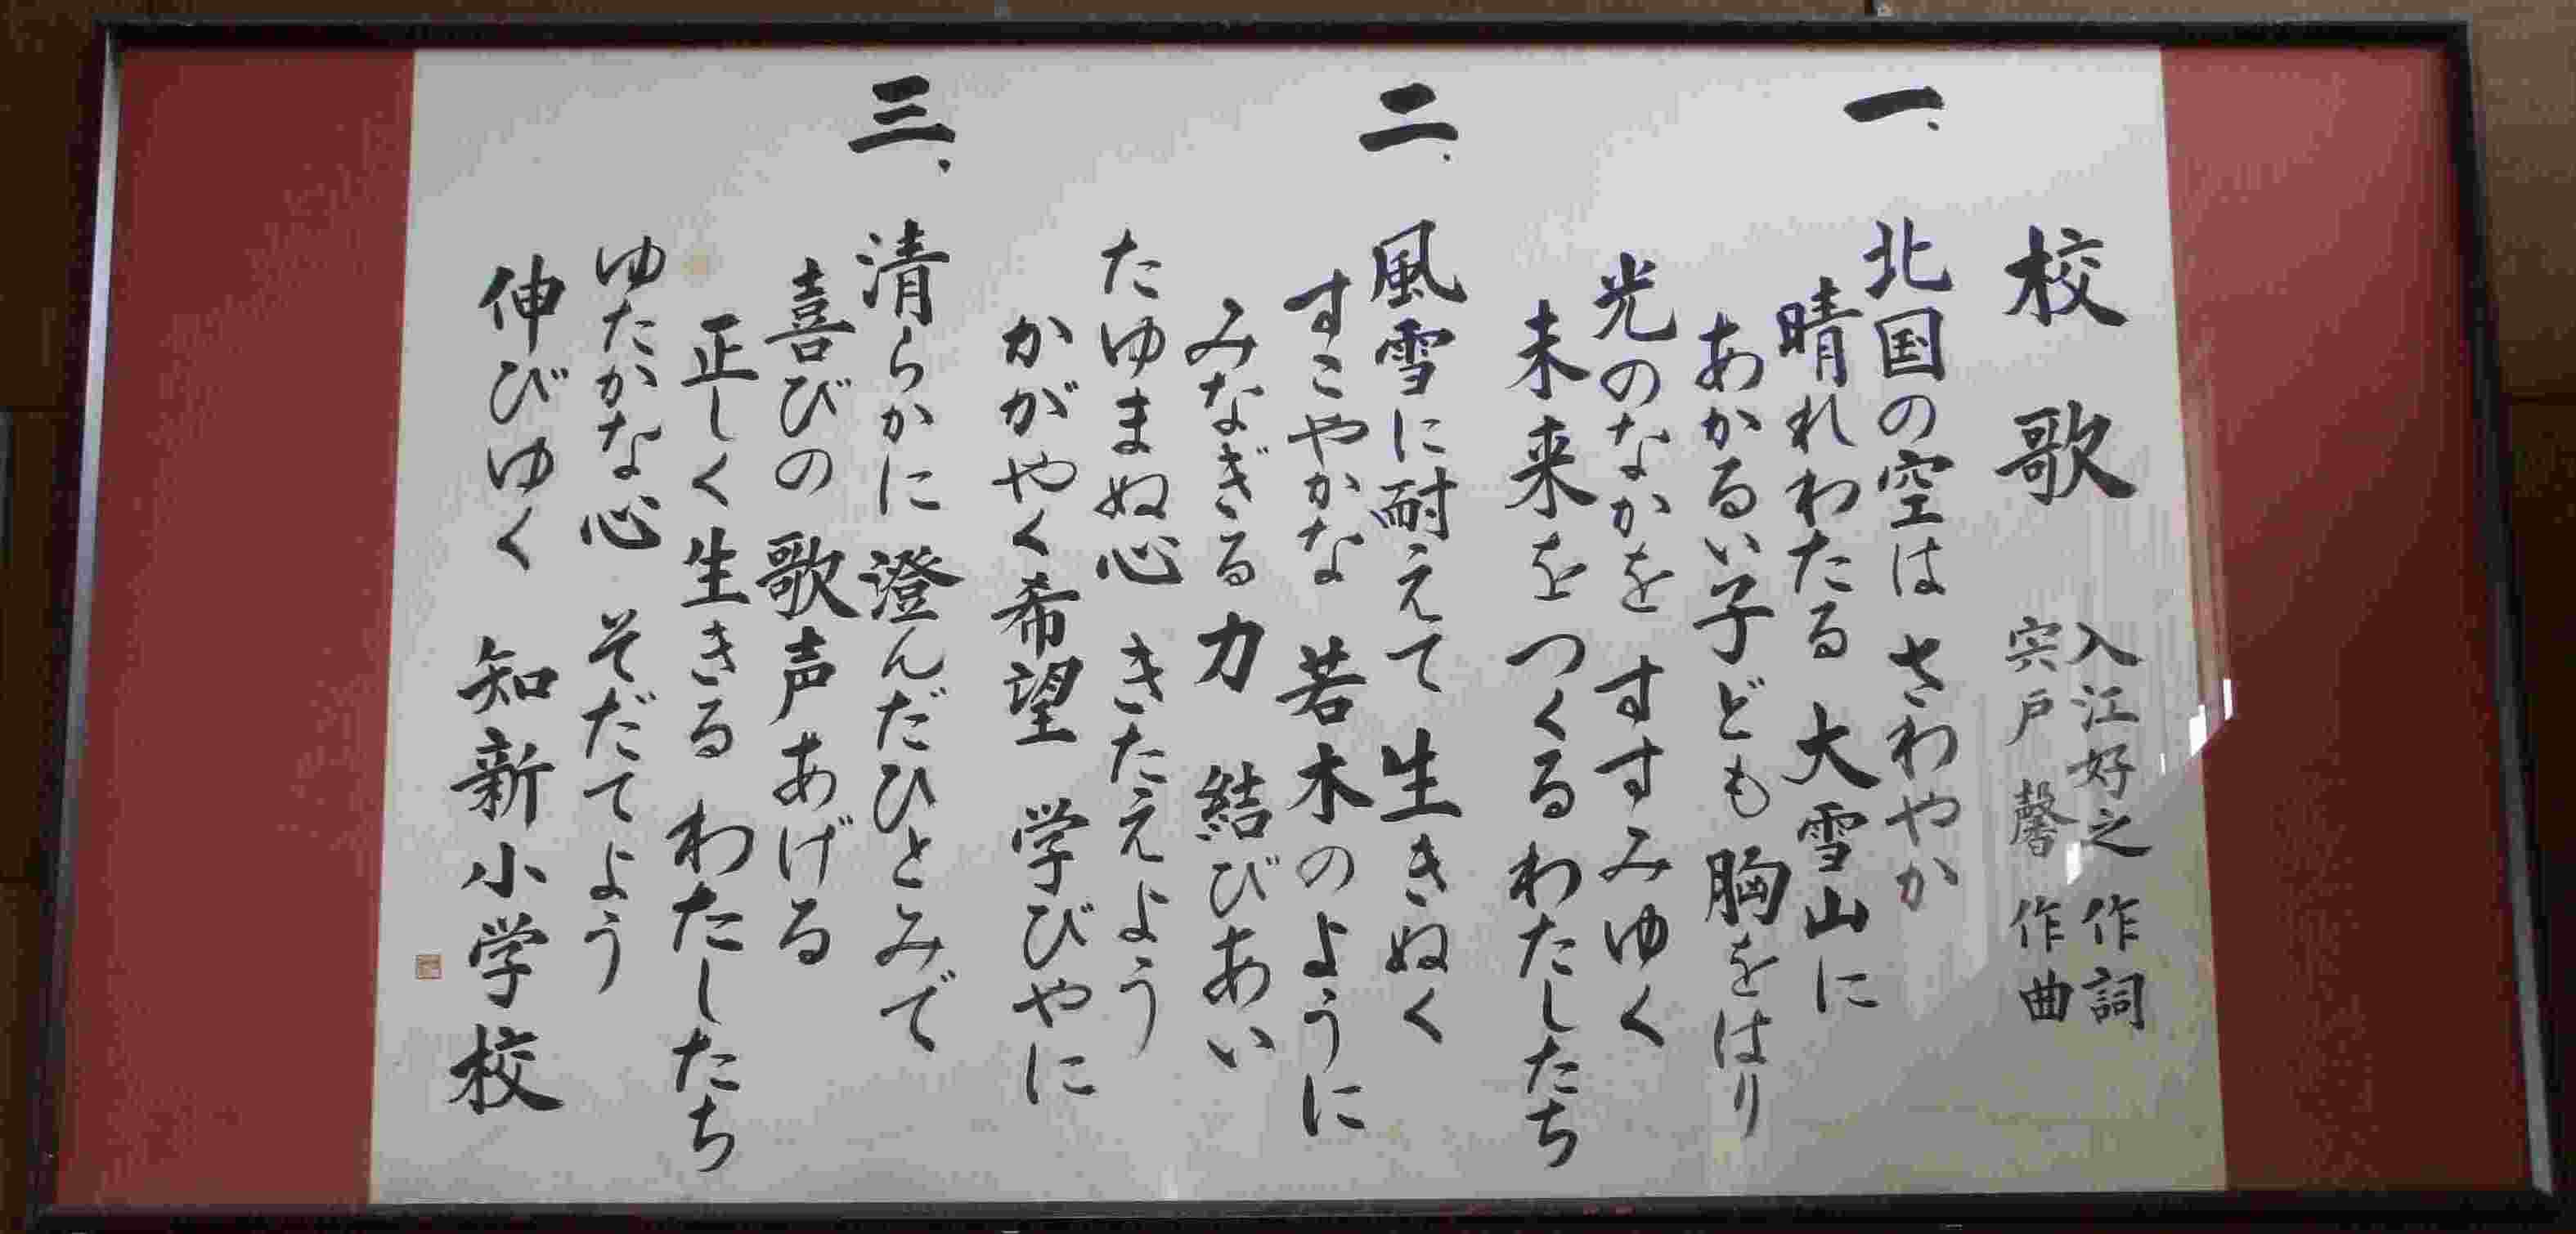 校歌
入江好之 作詞
宍戸 馨 作曲
一、
北国の空は さわやか
晴れわたる 大雪山に
あかるい子ども 胸をはり
光のなかを すすみゆく
未来を つくる わたしたち
二、
風雪に耐えて 生きぬく
すこやかな 若木のように
みなぎる力 結びあい
たゆまぬ心 きたえよう
かがやく希望 学びやに
三、
清らかに 澄んだひとみで
喜びの 歌声あげる
正しく生きる わたしたち
ゆたかな心 そだてよう
伸びゆく 知新小学校